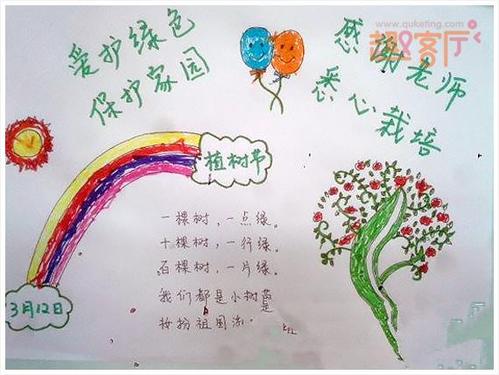 www.quketing.com
趣客厅
爱护绿色
保护家园
感谢老师
悉心栽培
植树节
3月12日
一棵树，一点绿。
十棵树，一行绿。
百棵树，一片绿。
我们都是小树苗
妆扮祖国